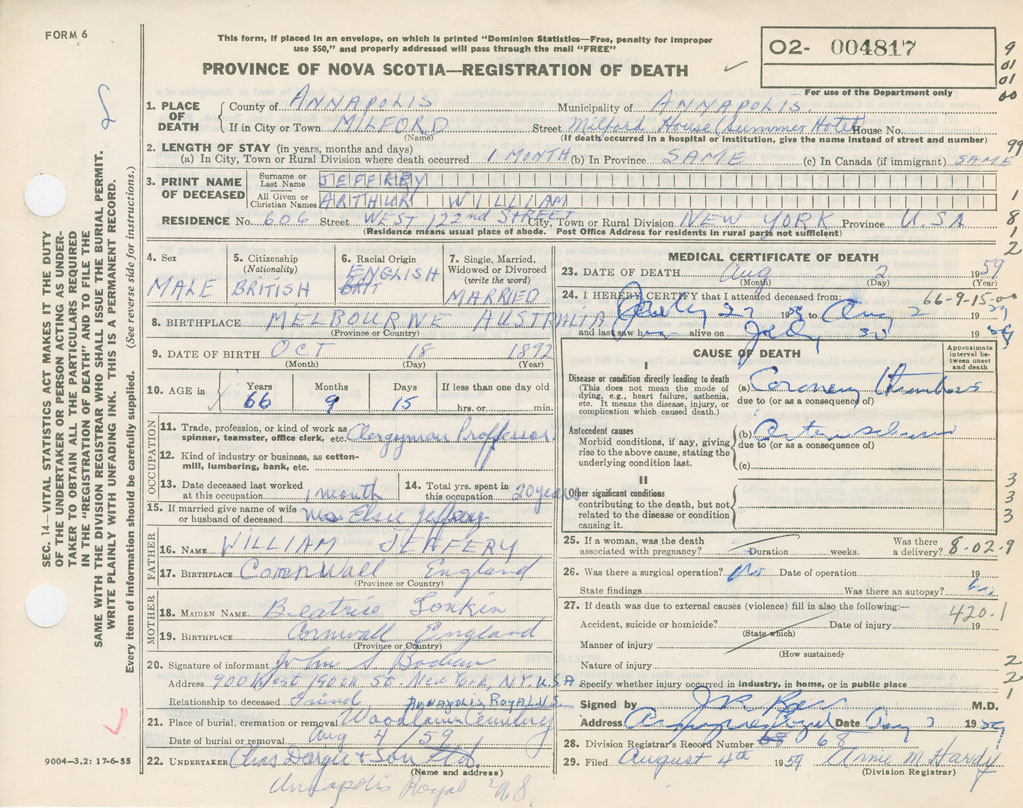 FORM 6
This form, if placed in an envelope, on which is printed "Dominion Statistics—Free, penalty for improper
use $50," and properly addressed will pass through the mail "FREE"
PROVINCE OF NOVA SCOTIA—REGISTRATION OF DEATH
O2- 004817
For use of the Department only
9
01
01
00
SEC. 14—VITAL STATISTICS ACT MAKES IT THE DUTY
OF THE UNDERTAKER OR PERSON ACTING AS UNDER-
TAKER TO OBTAIN ALL THE PARTICULARS REQUIRED
IN THE "REGISTRATION OF DEATH" AND TO FILE THE
SAME WITH THE DIVISION REGISTRAR WHO SHALL ISSUE THE BURIAL PERMIT.
WRITE PLAINLY WITH UNFADING INK. THIS IS A PERMANENT RECORD.
Every item of information should be carefully supplied. (See reverse side for instructions.)
1. PLACE OF DEATH
County of ANNAPOLIS Municipality of ANNAPOLIS
If in City or Town MILFORD Street Milford House (Summer Hotel) House No.
(Name) (If death occurred in a hospital or institution, give the name instead of street and number)
2. LENGTH OF STAY (in years, months and days)
(a) In City, Town or Rural Division where death occurred 1 MONTH (b) In Province SAME (c) In Canada (if immigrant) SAME
99
3. PRINT NAME OF DECEASED
Surname or Last Name JEFFREY
All Given or Christian Names ARTHUR WILLIAM
1
RESIDENCE No. 606 Street WEST 122nd STREET City, Town or Rural Division NEW YORK Province U.S.A
(Residence means usual place of abode. Post Office Address for residents in rural parts not sufficient)
8
1
2
4. Sex
MALE
5. Citizenship
(Nationality)
BRITISH
6. Racial Origin
ENGLISH
BRIT
7. Single, Married,
Widowed or Divorced
(write the word)
MARRIED
8. BIRTHPLACE MELBOURNE AUSTRALIA
(Province or Country)
9. DATE OF BIRTH OCT 18 1892
(Month) (Day) (Year)
10. AGE in
Years Months Days If less than one day old
66 9 15 hrs. or min.
OCCUPATION
11. Trade, profession, or kind of work as
spinner, teamster, office clerk, etc. Clergyman Proffessor
12. Kind of industry or business, as cotton-
mill, lumbering, bank, etc.
13. Date deceased last worked
at this occupation 1 month
14. Total yrs. spent in
this occupation 20 years
15. If married give name of wife
or husband of deceased Mrs Elsie Jeffery
FATHER
16. NAME WILLIAM JEFFERY
17. BIRTHPLACE Cornwall England
(Province or Country)
MOTHER
18. MAIDEN NAME Beatrice Lonkin
19. BIRTHPLACE Cornwall England
(Province or Country)
20. Signature of informant John S Badeau
Address 900 West 190th St. New York, N.Y. U.S.A
Relationship to deceased Friend
ANNAPOLIS ROYAL N.S.
21. Place of burial, cremation or removal Woodlawn Cemetery
Date of burial or removal Aug 4/59
22. UNDERTAKER Chas Dargie & Son Ltd.
(Name and address)
Annapolis Royal N.S.
9004—3.2: 17-6-55
MEDICAL CERTIFICATE OF DEATH
23. DATE OF DEATH Aug 2 1959
(Month) (Day) (Year)
24. I HEREBY CERTIFY that I attended deceased from: 66-9-15-00
July 27 19 to Aug 2 19
and last saw h alive on July 30 1959
CAUSE OF DEATH
Approximate
interval be-
tween onset
and death
I
Disease or condition directly leading to death
(This does not mean the mode of
dying, e.g., heart failure, asthenia,
etc. It means the disease, injury, or
complication which caused death.)
(a) Coronary thrombosis
due to (or as a consequence of)
Antecedent causes
Morbid conditions, if any, giving
rise to the above cause, stating the
underlying condition last.
(b)
due to (or as a consequence of)
(c)
II
Other significant conditions
contributing to the death, but not
related to the disease or condition
causing it.
3
3
3
3
25. If a woman, was the death
associated with pregnancy? Duration weeks.
Was there
a delivery? 8-02-9
26. Was there a surgical operation? No Date of operation 19
State findings Was there an autopsy? No
27. If death was due to external causes (violence) fill in also the following:—
420.1
Accident, suicide or homicide? Date of injury 19
(State which)
Manner of injury
(How sustained)
Nature of injury
2
Specify whether injury occurred in industry, in home, or in public place
2
1
Signed by M.D.
Address Annapolis Royal Date Aug 19 59
28. Division Registrar's Record Number 68
29. Filed August 4th 1959 Annie M Hardy
(Division Registrar)